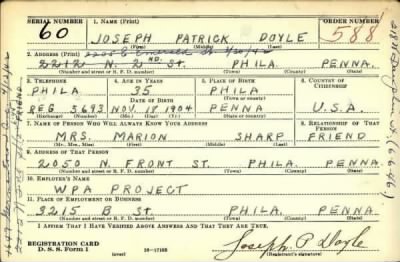 SERIAL NUMBER 1. NAME (Print) ORDER NUMBER
60 JOSEPH PATRICK DOYLE 588
(First) (Middle) (Last)
2. ADDRESS (Print)
2212 N. 2ND. ST. PHILA. PENNA.
(Number and street or R. F. D. number) (Town) (County) (State)
3. TELEPHONE 4. AGE IN YEARS 5. PLACE OF BIRTH 6. COUNTRY OF CITIZENSHIP
PHILA 35 PHILA
DATE OF BIRTH
REG 3693 NOV. 18 1904 PENNA U.S.A.
(Exchange) (Number) (Mo.) (Day) (Yr.) (State or country)
7. NAME OF PERSON WHO WILL ALWAYS KNOW YOUR ADDRESS 8. RELATIONSHIP OF THAT PERSON
MRS. MARION SHARP FRIEND
(Mr., Mrs., Miss) (First) (Middle) (Last)
9. ADDRESS OF THAT PERSON
2050 N. FRONT ST. PHILA. PENNA.
(Number and street or R. F. D. number) (Town) (County) (State)
10. EMPLOYER'S NAME
WPA PROJECT
11. PLACE OF EMPLOYMENT OR BUSINESS
3215 B ST. PHILA PENNA
(Number and street or R. F. D. number) (Town) (County) (State)
I AFFIRM THAT I HAVE VERIFIED ABOVE ANSWERS AND THAT THEY ARE TRUE.
REGISTRATION CARD
D. S. S. Form 1 (over) 16—17105 Joseph P Doyle
(Registrant's signature)